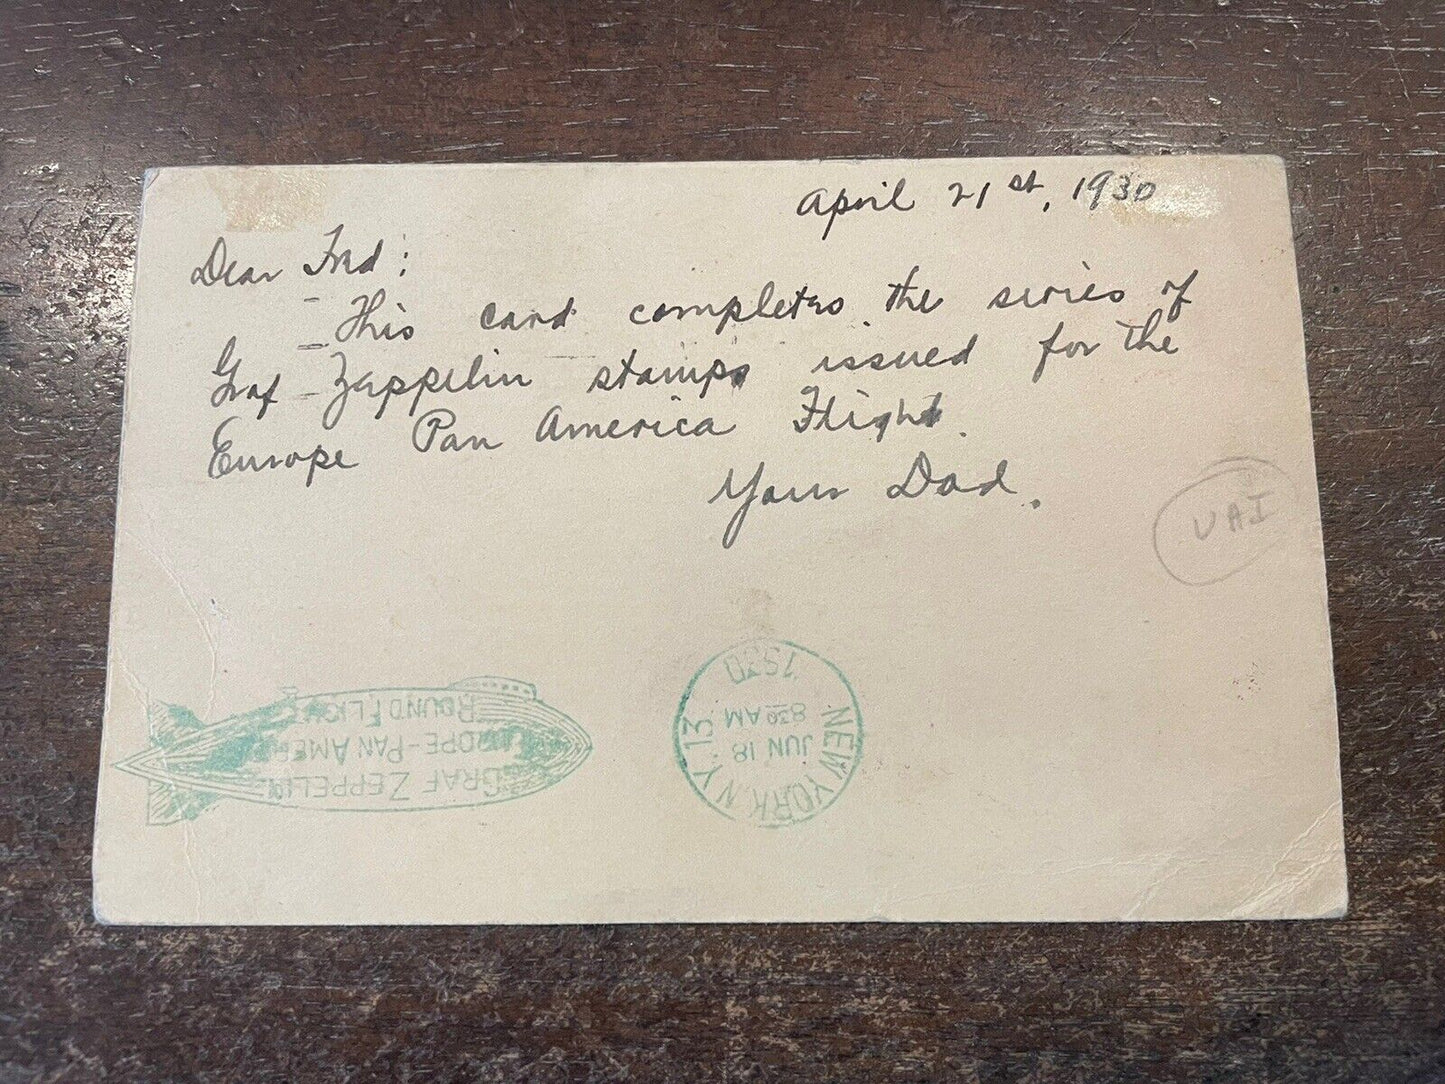 April 21st, 1930
Dear Fred:
This card completes the series of
Graf Zeppelin stamps issued for the
Europe Pan America Flight.
Your Dad.
UAI
GRAF ZEPPELIN
EUROPE-PAN AMERICA
ROUND FLIGHT
NEW YORK N.Y. 13
JUN 18
830 AM
1930